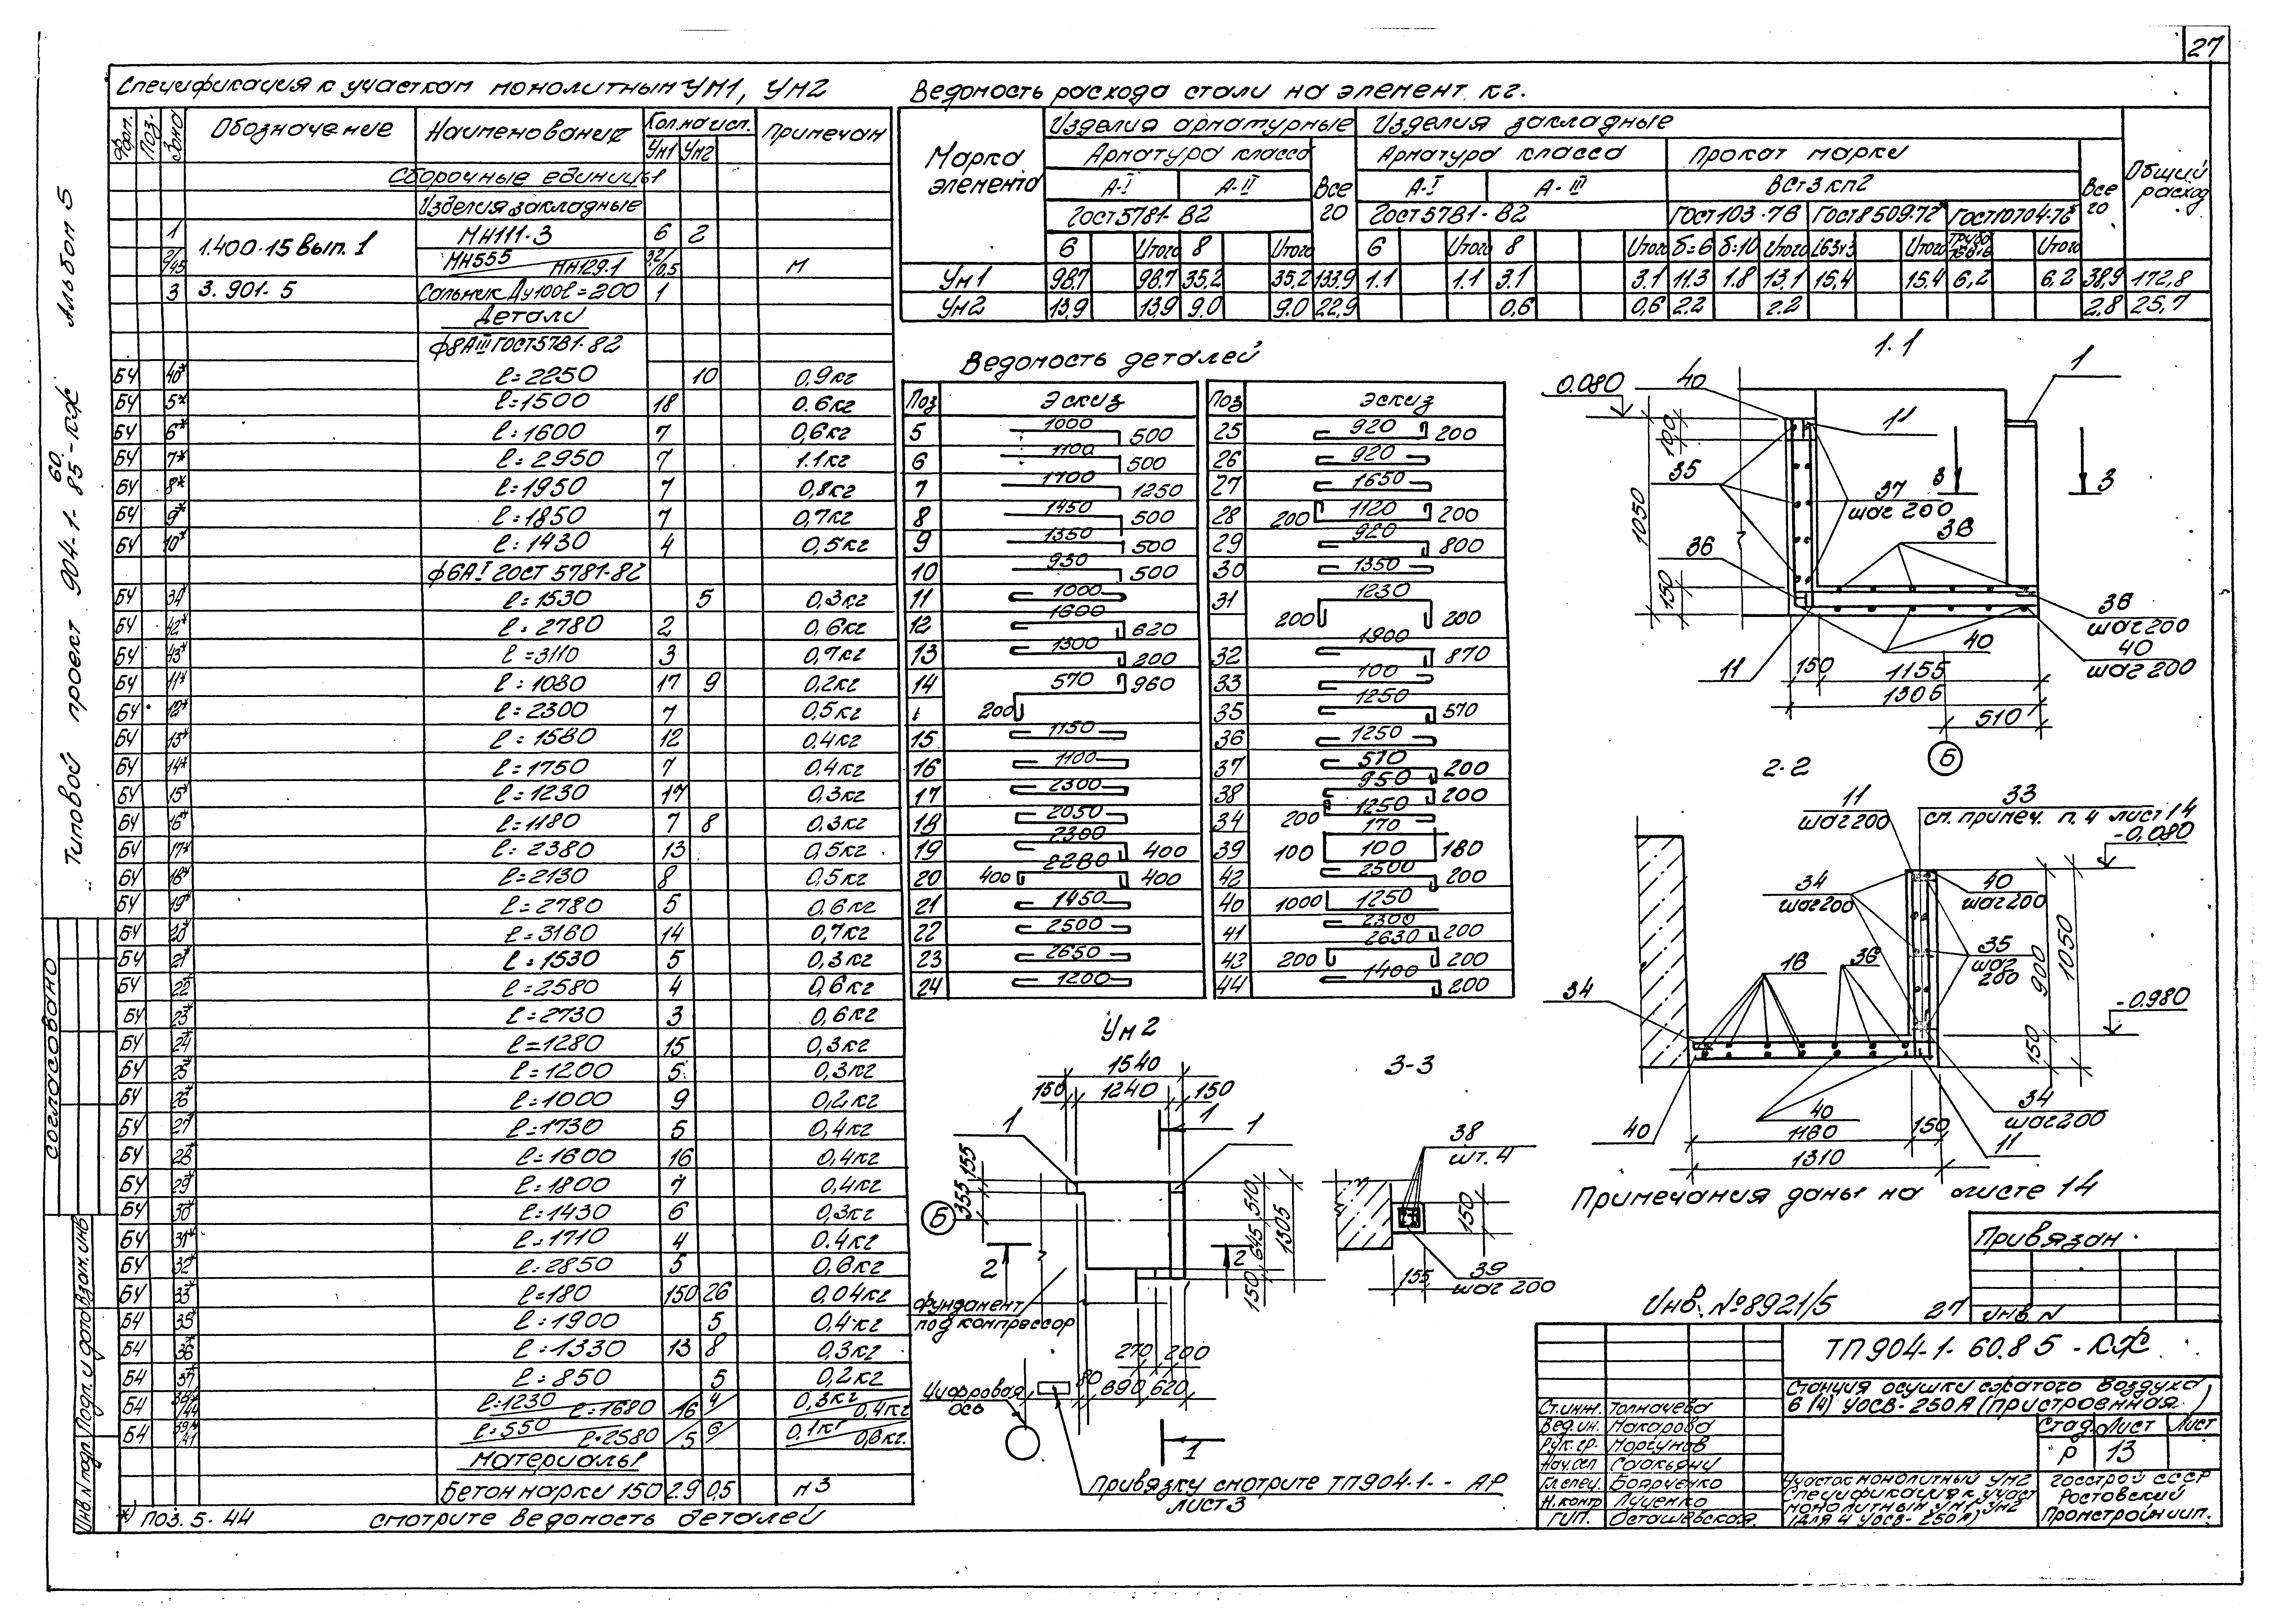 27
Типовой проект 904-1-60.85-КЖ Альбом 5
Спецификация к участкам монолитным Ум1, Ум2
Форм. Поз. Зона Обозначение Наименование Кол. на исп. Примечан
Ум1 Ум2
Сборочные единицы
Изделия закладные
1 1.400-15 вып. 1 МН111-3 6 2
МН555 МН129-1 м
3 3.901-5 Сальник Ду100 l=200 1
Детали
ф8АIII ГОСТ5781-82
БЧ 40* l=2250 10 0.9кг
БЧ 5* l=1500 18 0.6кг
БЧ 6* l=1600 7 0,6кг
БЧ 7* l=2950 7 1.1кг
БЧ 8* l=1950 7 0,8кг
БЧ 9* l=1850 7 0,7кг
БЧ 10* l=1430 4 0,5кг
ф6АI ГОСТ 5781-82
БЧ 34* l=1530 5 0,3кг
БЧ 42* l=2780 2 0,6кг
БЧ 43* l=3110 3 0,7кг
БЧ 11* l=1080 17 9 0.2кг
БЧ 12* l=2300 7 0,5кг
БЧ 13* l=1580 12 0.4кг
БЧ 14* l=1750 7 0.4кг
БЧ 15* l=1230 17 0,3кг
БЧ 16* l=1180 7 8 0.3кг
БЧ 17* l=2380 13 0,5кг
БЧ 18* l=2130 8 0,5кг
БЧ 19* l=2780 5 0.6кг
БЧ 20* l=3160 14 0,7кг
БЧ 21* l=1530 5 0,3кг
БЧ 22* l=2580 4 0,6кг
БЧ 23* l=2730 3 0,6кг
БЧ 24* l=1280 15 0,3кг
БЧ 25* l=1200 5 0,3кг
БЧ 26* l=1000 9 0,2кг
БЧ 27* l=1730 5 0,4кг
БЧ 28* l=1600 16 0,4кг
БЧ 29* l=1800 7 0,4кг
БЧ 30* l=1430 6 0,3кг
БЧ 31* l=1710 4 0.4кг
БЧ 32* l=2850 5 0,6кг
БЧ 33* l=180 150 26 0,04кг
БЧ 35* l=1900 5 0,4кг
БЧ 36* l=1330 13 8 0,3кг
БЧ 37* l=850 5 0,2кг
БЧ 38*/44 l=1230 l=1680 16 4 0,3кг 0,4кг
БЧ 39*/41 l=550 l=2580 5 6 0,1кг 0,6кг.
Материалы
Бетон марки 150 2.9 0,5 м3
*) поз. 5-44 смотрите ведомость деталей
Ведомость расхода стали на элемент, кг.
Марка элемента Изделия арматурные Изделия закладные Общий расход
Арматура класса Всего Арматура класса Прокат марки Всего
А-I А-II А-I А-III ВСт3кп2
ГОСТ5781-82 ГОСТ5781-82 ГОСТ103-76 ГОСТ8509-72* ГОСТ10704-76*
6 Итого 8 Итого 6 Итого 8 Итого δ=6 δ=10 Итого L63х3 Итого Итого
Ум1 98.7 98.7 35,2 35,2 133,9 1.1 1.1 3.1 3.1 11.3 1.8 13,1 15,4 15.4 6,2 6,2 38,9 172,8
Ум2 13,9 13,9 9.0 9.0 22,9 0,6 0,6 2.2 2.2 2.8 25,7
Ведомость деталей
Поз Эскиз Поз Эскиз
5 1000 500
6 1100 500
7 1700 1250
8 1450 500
9 1350 500
10 930 500
11 1000
12 1600 620
13 1300 200
14 570 960 200
15 1150
16 1100
17 2300
18 2050
19 2300 400
20 400 2280 400
21 1450
22 2500
23 2650
24 1200
25 920 200
26 920
27 1650
28 200 1120 200
29 920 800
30 1350
31 1230 200 200
32 1900 870
33 100
35 1250 570
36 1250
37 570 200
38 950 200
34 200 1250
39 170 100 100 180
42 2500 200
40 1000 1250
41 2300 200
43 200 2630 200
44 1400 200
1-1
0.080 40 1
11
35 37 шаг 200
3 3
38
36
100
1050
150
36 шаг 200
40 шаг 200
40
11
150 1155
1305
510
Б
2-2
11 шаг 200
33
см. примеч. п. 4 лист 14
-0,080
34 шаг 200
40 шаг 200
35 шаг 200
900
1050
16 36
34
-0.980
150
34 шаг 200
40
40
11
1160 150
1310
Ум2
1540
150 1240 150
1 1 1
155
355
Б
510
645
1305
150
2 2
фундамент под компрессор
270 200
80 690 620
цифровая ось
1
Привязку смотрите ТП904-1- - АР
лист3
3-3
38 шт. 4
150
39 шаг 200
155
Примечания даны на листе 14
Привязан
Инв. N
Инв. №8921/5 27
ТП904-1-60.85-КЖ
Станция осушки сжатого воздуха 6 (4) УОСВ-250А (пристроенная)
Стад. Лист Лист
Р 13
Ст.инж. Толмачева
Вед.ин. Макарова
Рук.гр. Моргунов
Нач.осп Саакьянц
Гл.спец. Боярченко
Н.контр Луценко
ГИП. Осташевская.
Участок монолитный Ум2 Спецификация к участ монолитным Ум1, Ум2 (для 4 УОСВ-250А)
Госстрой СССР Ростовский Промстройниип.
Согласовано
Инв.N подл. Подп. и дата Взам.инв